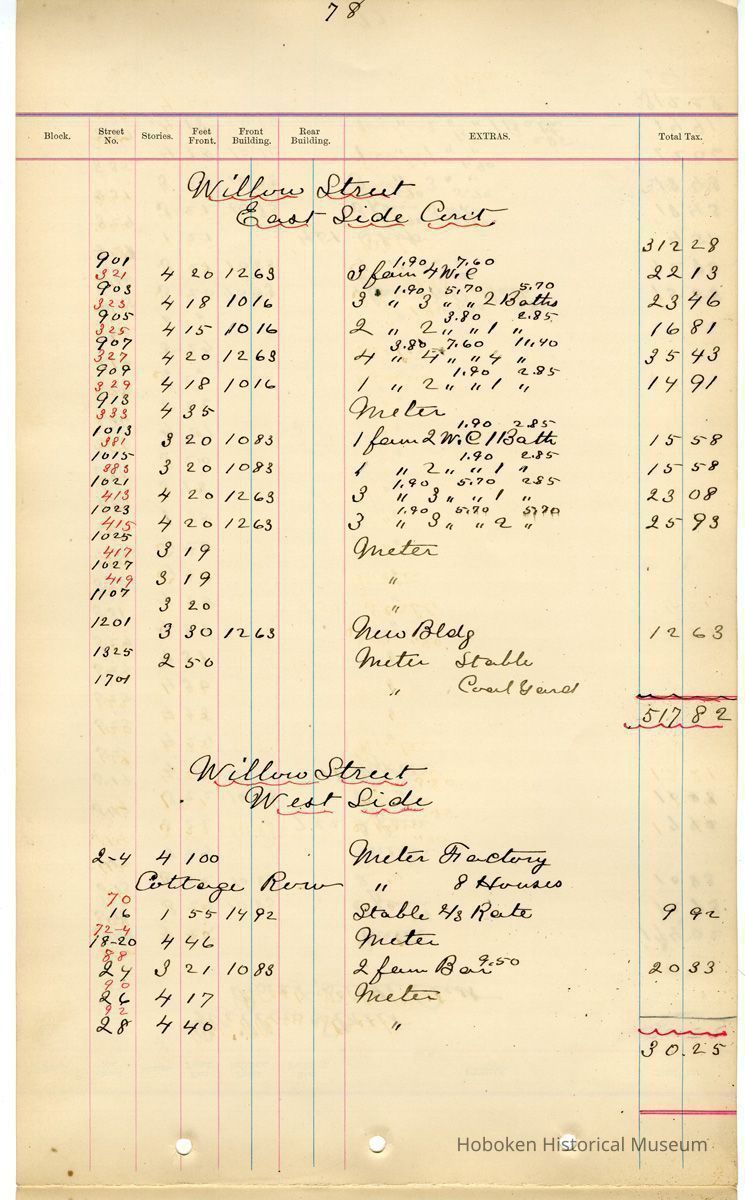 78
Block. Street No. Stories. Feet Front. Front Building. Rear Building. EXTRAS. Total Tax.
Willow Street
East Side Cont
3122 8
901 1.90 7.60
321 4 20 1263 3 fam 4 W.C 22 13
903 1.90 5.70 5.70
323 4 18 1016 3 " 3 " " 2 Baths 23 46
905 3.80 2.85
325 4 15 1016 2 " 2 " " 1 " 16 81
907 3.80 7.60 11.40
327 4 20 1263 4 " 4 " " 4 " 35 43
909 1.90 2.85
329 4 18 1016 1 " 2 " " 1 " 14 91
913
333 4 35 Meter
1013 1.90 2.85
381 3 20 1083 1 fam 2 W.C 1 Bath 15 58
1015 1.90 2.85
383 3 20 1083 1 " 2 " " 1 " 15 58
1021 1.90 5.70 2.85
413 4 20 1263 3 " 3 " " 1 " 23 08
1023 1.90 5.70 5.70
415 4 20 1263 3 " 3 " " 2 " 25 93
1025
417 3 19 Meter
1027
419 3 19 "
1107
3 20 "
1201
3 30 1263 New Bldg 12 63
1325
2 50 Meter Stable
1701
" Coal Yard
517 82
Willow Street
West Side
2-4 4 100 Meter Factory
Cottage Row " 8 Houses
70
16 1 55 1492 Stable 2/3 Rate 9 92
72-4
18-20 4 46 Meter
88
24 3 21 1083 2 fam Bar 9.50 20 33
90
26 4 17 Meter
92
28 4 40 "
30.25
Hoboken Historical Museum